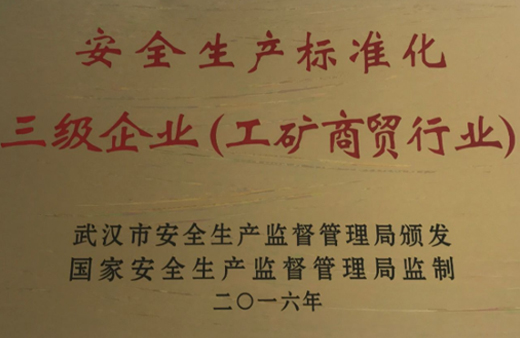 安全生产标准化
三级企业(工矿商贸行业)
武汉市安全生产监督管理局颁发
国家安全生产监督管理局监制
二〇一六年